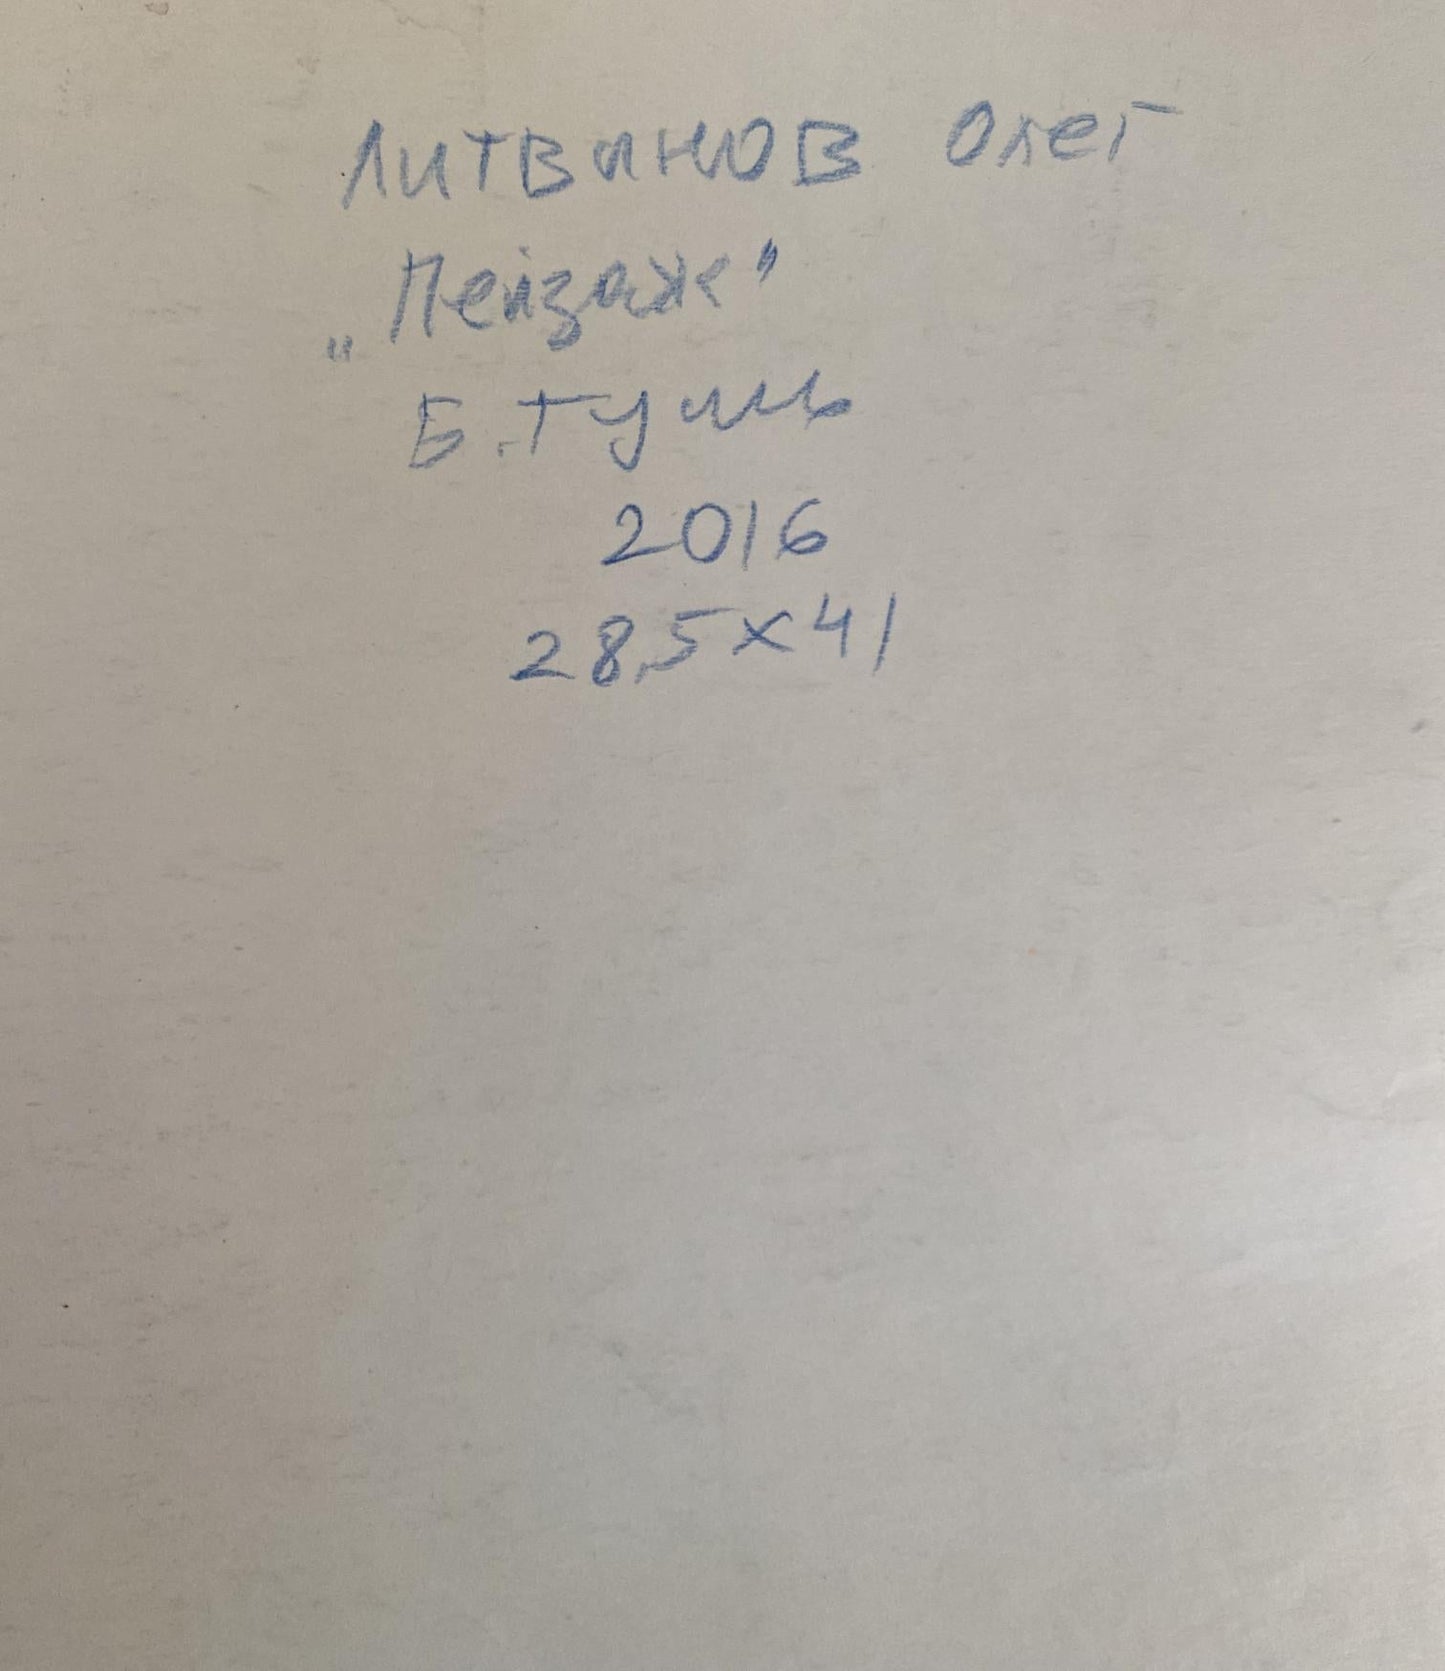 Литвинов Олег
„Пейзаж"
Б. Тушь
2016
28,5x41